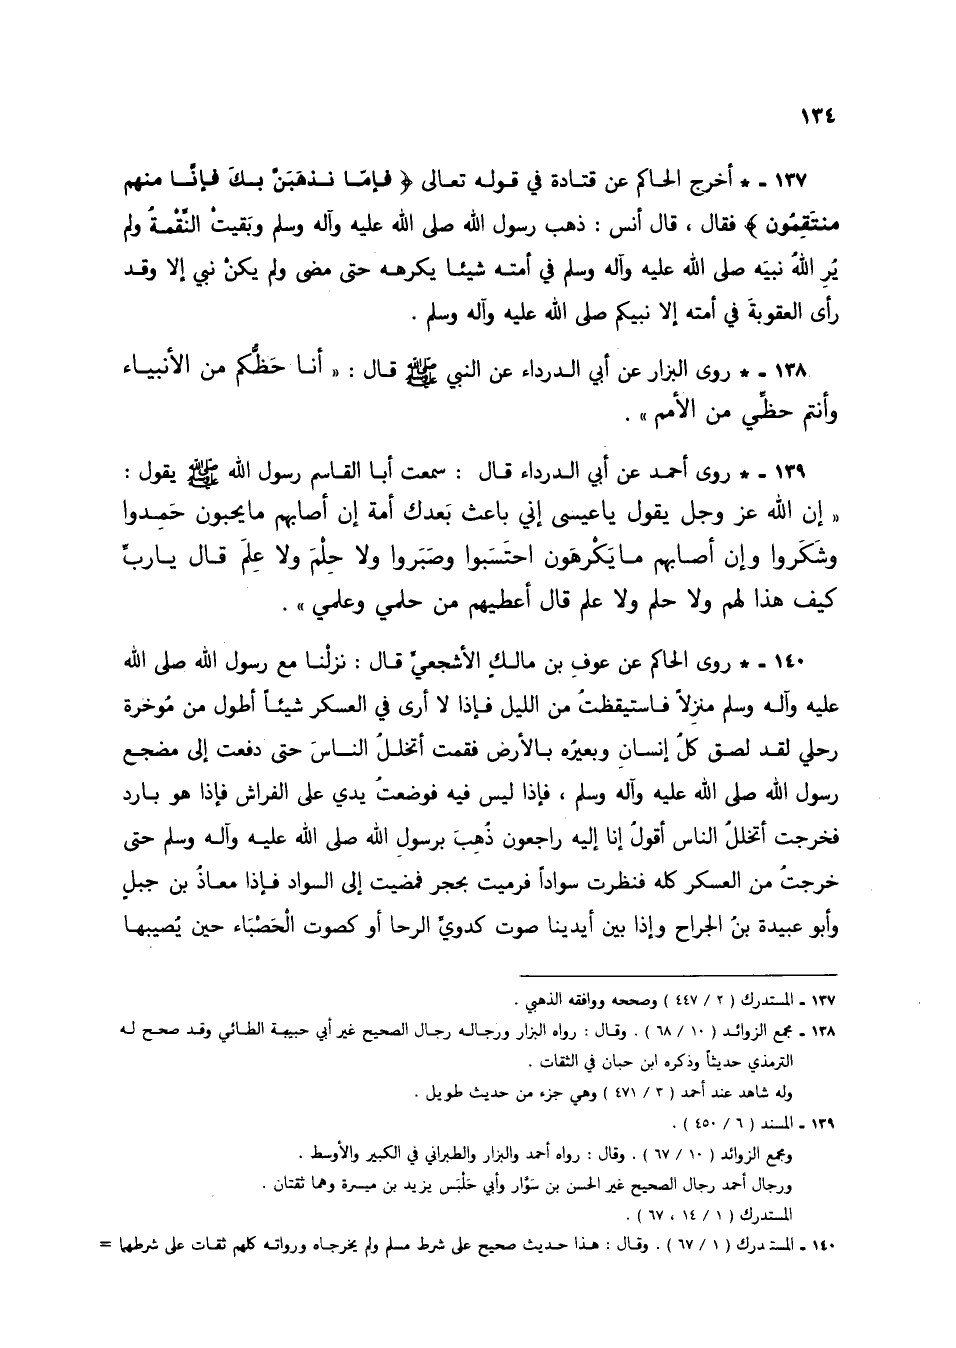 ١٣٤
١٣٧ - * أخرج الحاكم عن قتادة في قوله تعالى ﴿ فإمّا نذهَبَنْ بكَ فإنَّا منهم
منتَقِمُون ﴾ فقال ، قال أنس : ذهب رسول الله صلى الله عليه وآله وسلم وبَقيتْ النَّقْمةُ ولم
يُرِ اللهُ نبيَه صلى الله عليه وآله وسلم في أمته شيئا يكرهه حتى مضى ولم يكنْ نبي إلا وقد
رأى العقوبةَ في أمته إلا نبيكم صلى الله عليه وآله وسلم .
١٣٨ - * روى البزار عن أبي الدرداء عن النبي ﷺ قال : « أنا حَظُّكم من الأنبياء
وأنتم حظِّي من الأمم » .
١٣٩ - * روى أحمد عن أبي الدرداء قال : سمعت أبا القاسم رسول الله ﷺ يقول :
« إن الله عز وجل يقول ياعيسى إني باعث بَعدك أمة إن أصابهم مايحبون حَمِدوا
وشَكَروا وإن أصابهم مايَكْرهَون احتَسَبوا وصَبَروا ولا حِلْمَ ولا عِلمَ قال ياربِّ
كيف هذا لهم ولا حلم ولا علم قال أعطيهم من حلمي وعلمي » .
١٤٠ - * روى الحاكم عن عوفِ بن مالكٍ الأشجعيِّ قال : نزلْنا مع رسول الله صلى الله
عليه وآله وسلم منزِلاً فاستيقظتُ من الليل فإذا لا أرى في العسكر شيئاً أطول من مُوخرة
رحلي لقد لصق كلُ إنسانٍ وبعيرُه بالأرض فقمت أتخللُ الناسَ حتى دفعت إلى مضجع
رسول الله صلى الله عليه وآله وسلم ، فإذا ليس فيه فوضعتُ يدي على الفراش فإذا هو بارد
فخرجت أتخللُ الناس أقولُ إنا إليه راجعون ذُهِبَ برسولِ الله صلى الله عليه وآله وسلم حتى
خرجتُ من العسكر كله فنظرت سواداً فرميت بحجر فمضيت إلى السواد فإذا معاذُ بن جبلٍ
وأبو عبيدة بنُ الجراح وإذا بين أيدينا صوت كدويِّ الرحا أو كصوت الْحَصْبَاء حين يُصيبها
١٣٧ - المستدرك ( ٢ / ٤٤٧ ) وصححه ووافقه الذهبي .
١٣٨ - مجمع الزوائد ( ١٠ / ٦٨ ) . وقال : رواه البزار ورجاله رجال الصحيح غير أبي حبيبة الطائي وقد صحح له
الترمذي حديثاً وذكره ابن حبان في الثقات .
وله شاهد عند أحمد ( ٣ / ٤٧١ ) وهي جزء من حديث طويل .
١٣٩ - المسند ( ٦ / ٤٥٠ ) .
ومجمع الزوائد ( ١٠ / ٦٧ ) . وقال : رواه أحمد والبزار والطبراني في الكبير والأوسط .
ورجال أحمد رجال الصحيح غير الحسن بن سَوَّار وأبي حَلْبَس يزيد بن ميسرة وهما ثقتان .
المستدرك ( ١ / ١٤ ، ٦٧ ) .
١٤٠ - المستدرك ( ١ / ٦٧ ) . وقال : هذا حديث صحيح على شرط مسلم ولم يخرجاه ورواته كلهم ثقات على شرطهما =